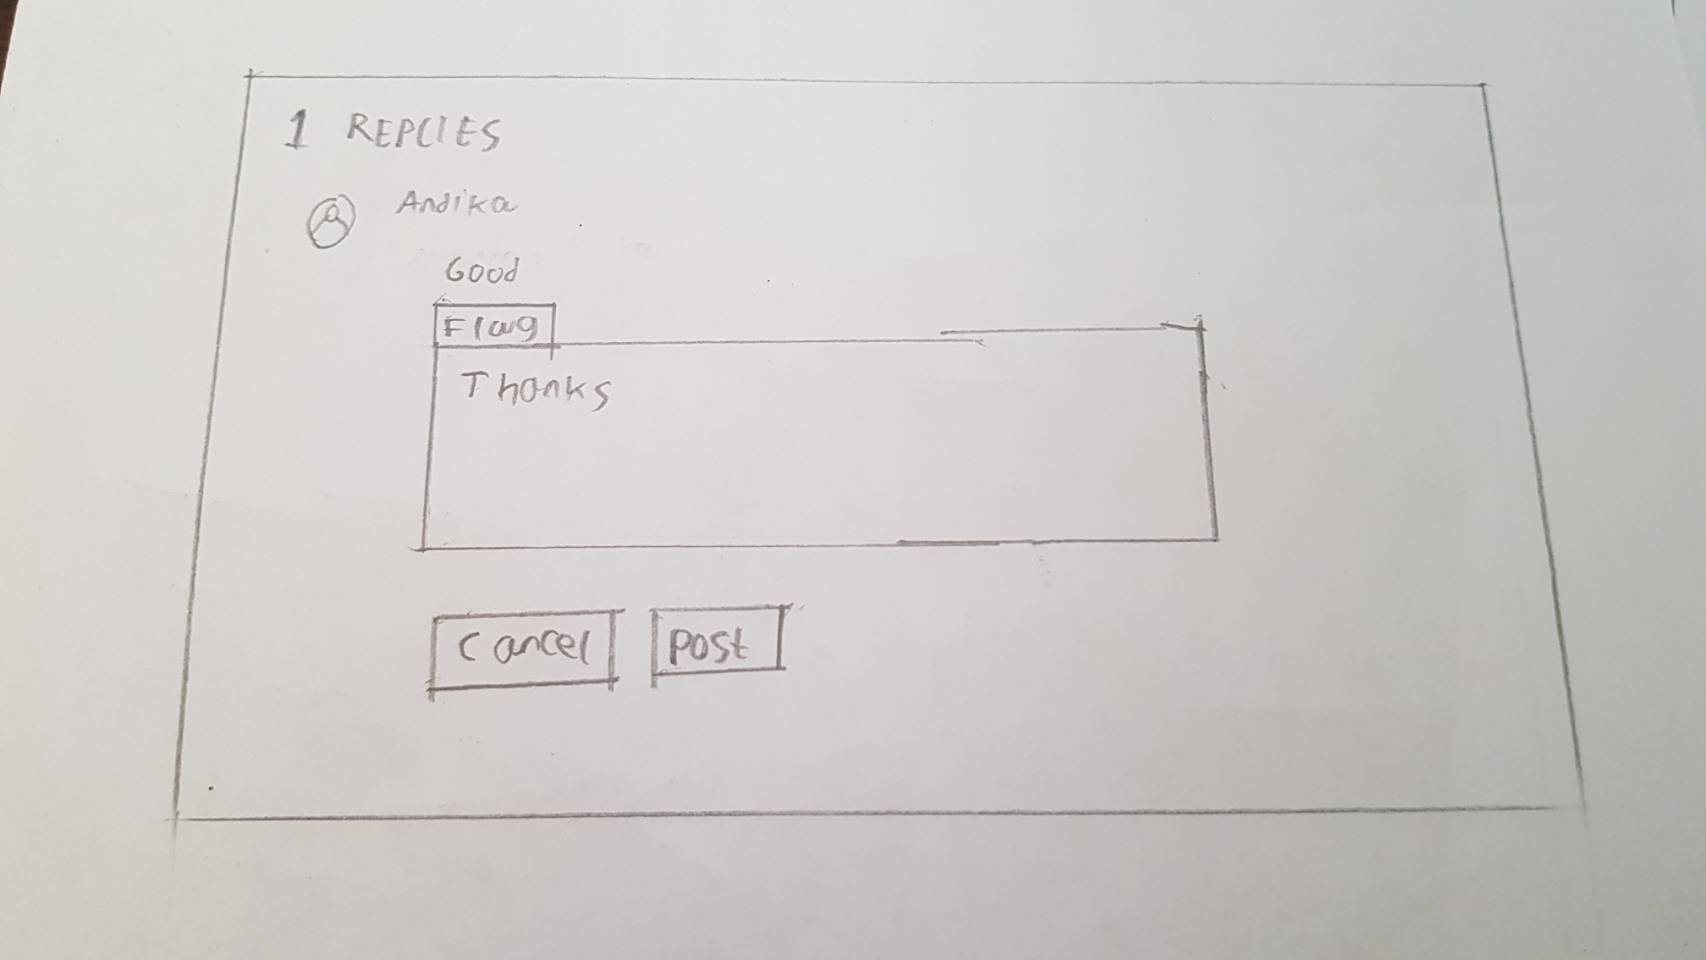 1 REPLIES
Andika
Good
Flag
Thanks
Cancel Post